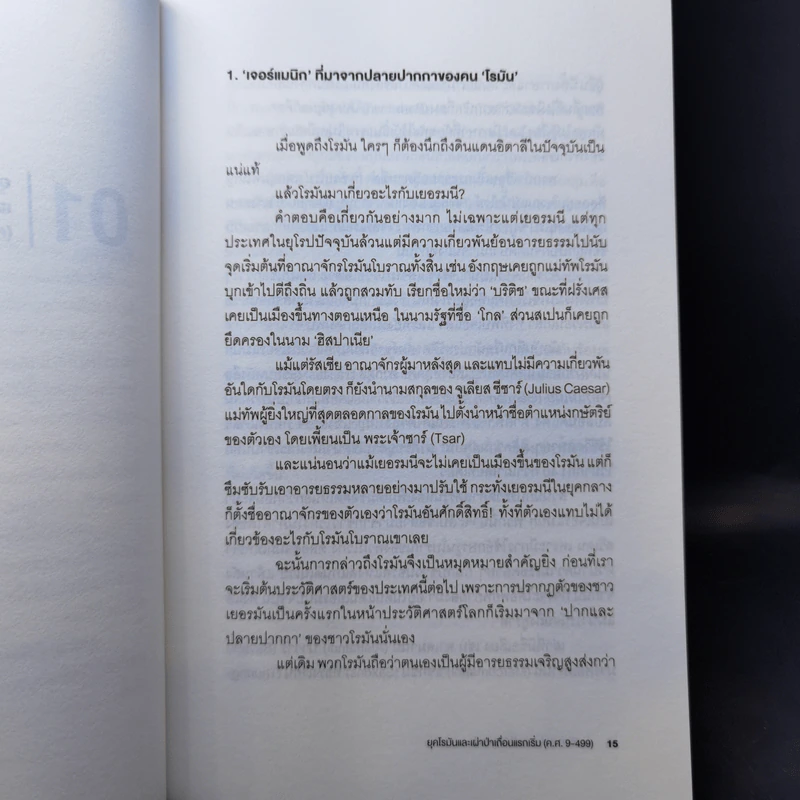 1. ‘เจอร์แมนิก’ ที่มาจากปลายปากกาของคน ‘โรมัน’
เมื่อพูดถึงโรมัน ใครๆ ก็ต้องนึกถึงดินแดนอิตาลีในปัจจุบันเป็น
แน่แท้
แล้วโรมันมาเกี่ยวอะไรกับเยอรมนี?
คำตอบคือเกี่ยวกันอย่างมาก ไม่เฉพาะแต่เยอรมนี แต่ทุก
ประเทศในยุโรปปัจจุบันล้วนแต่มีความเกี่ยวพันย้อนอารยธรรมไปนับ
จุดเริ่มต้นที่อาณาจักรโรมันโบราณทั้งสิ้น เช่น อังกฤษเคยถูกแม่ทัพโรมัน
บุกเข้าไปตีถึงถิ่น แล้วถูกสวมทับ เรียกชื่อใหม่ว่า ‘บริติช’ ขณะที่ฝรั่งเศส
เคยเป็นเมืองขึ้นทางตอนเหนือ ในนามรัฐที่ชื่อ ‘โกล’ ส่วนสเปนก็เคยถูก
ยึดครองในนาม ‘ฮิสปาเนีย’
แม้แต่รัสเซีย อาณาจักรผู้มาหลังสุด และแทบไม่มีความเกี่ยวพัน
อันใดกับโรมันโดยตรง ก็ยังนำนามสกุลของ จูเลียส ซีซาร์ (Julius Caesar)
แม่ทัพผู้ยิ่งใหญ่ที่สุดตลอดกาลของโรมัน ไปตั้งนำหน้าชื่อตำแหน่งกษัตริย์
ของตัวเอง โดยเพี้ยนเป็น พระเจ้าซาร์ (Tsar)
และแน่นอนว่าแม้เยอรมนีจะไม่เคยเป็นเมืองขึ้นของโรมัน แต่ก็
ซึมซับรับเอาอารยธรรมหลายอย่างมาปรับใช้ กระทั่งเยอรมนีในยุคกลาง
ก็ตั้งชื่ออาณาจักรของตัวเองว่าโรมันอันศักดิ์สิทธิ์! ทั้งที่ตัวเองแทบไม่ได้
เกี่ยวข้องอะไรกับโรมันโบราณเขาเลย
ฉะนั้นการกล่าวถึงโรมันจึงเป็นหมุดหมายสำคัญยิ่ง ก่อนที่เรา
จะเริ่มต้นประวัติศาสตร์ของประเทศนี้ต่อไป เพราะการปรากฏตัวของชาว
เยอรมันเป็นครั้งแรกในหน้าประวัติศาสตร์โลกก็เริ่มมาจาก ‘ปากและ
ปลายปากกา’ ของชาวโรมันนั่นเอง
แต่เดิม พวกโรมันถือว่าตนเองเป็นผู้มีอารยธรรมเจริญสูงส่งกว่า
ยุคโรมันและเผ่าป่าเถื่อนแรกเริ่ม (ค.ศ. 9-499) 15